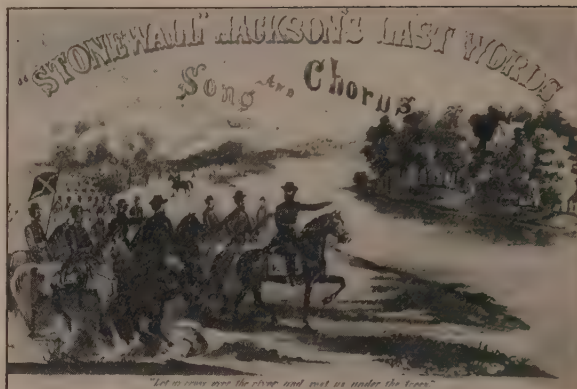 "STONEWALL" JACKSON'S LAST WORDS
Song AND Chorus
"Let us cross over the river and rest us under the trees"